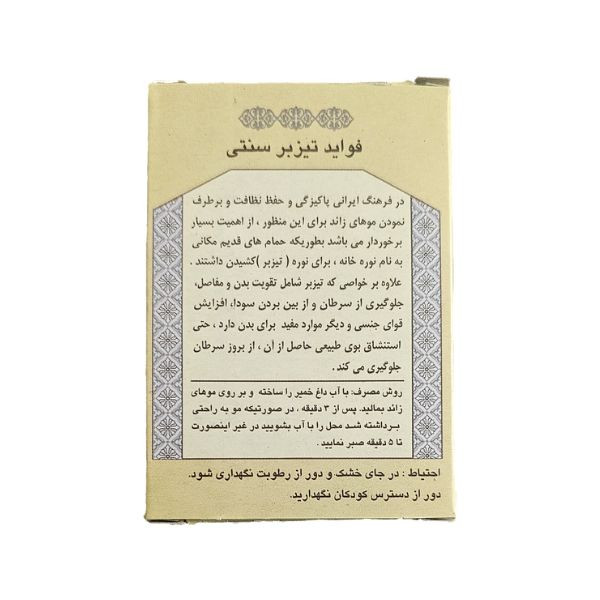 فواید تیزبر سنتی
در فرهنگ ایرانی پاکیزگی و حفظ نظافت و برطرف
نمودن موهای زائد برای این منظور ، از اهمیت بسیار
برخوردار می باشد بطوریکه حمام های قدیم مکانی
به نام نوره خانه ، برای نوره ( تیزبر )کشیدن داشتند .
علاوه بر خواصی که تیزبر شامل تقویت بدن و مفاصل،
جلوگیری از سرطان و از بین بردن سودا، افزایش
قوای جنسی و دیگر موارد مفید برای بدن دارد ، حتی
استنشاق بوی طبیعی حاصل از آن ، از بروز سرطان
جلوگیری می کند .
روش مصرف: با آب داغ خمیر را ساخته و بر روی موهای
زائد بمالید. پس از ۳ دقیقه ، در صورتیکه مو به راحتی
برداشته شد محل را با آب بشویید در غیر اینصورت
تا ۵ دقیقه صبر نمایید .
احتیاط : در جای خشک و دور از رطوبت نگهداری شود.
دور از دسترس کودکان نگهدارید.